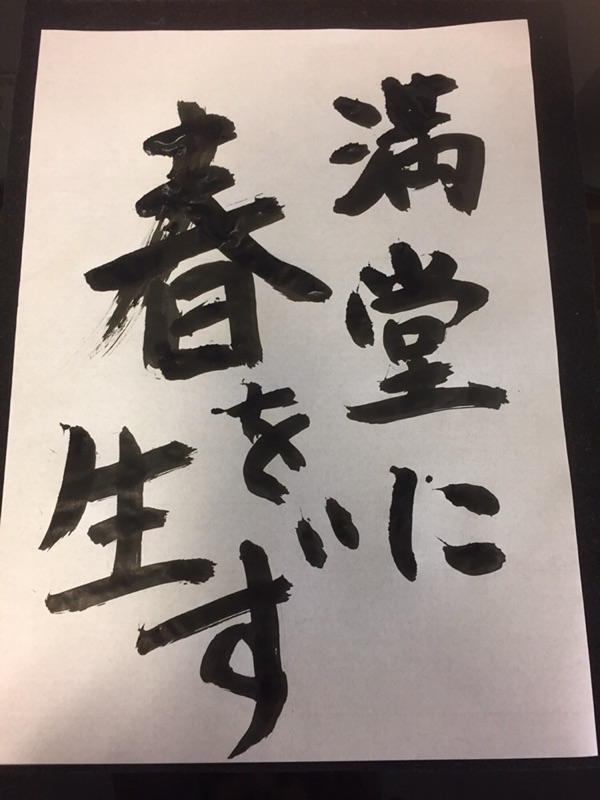 満堂に
春を
生ず